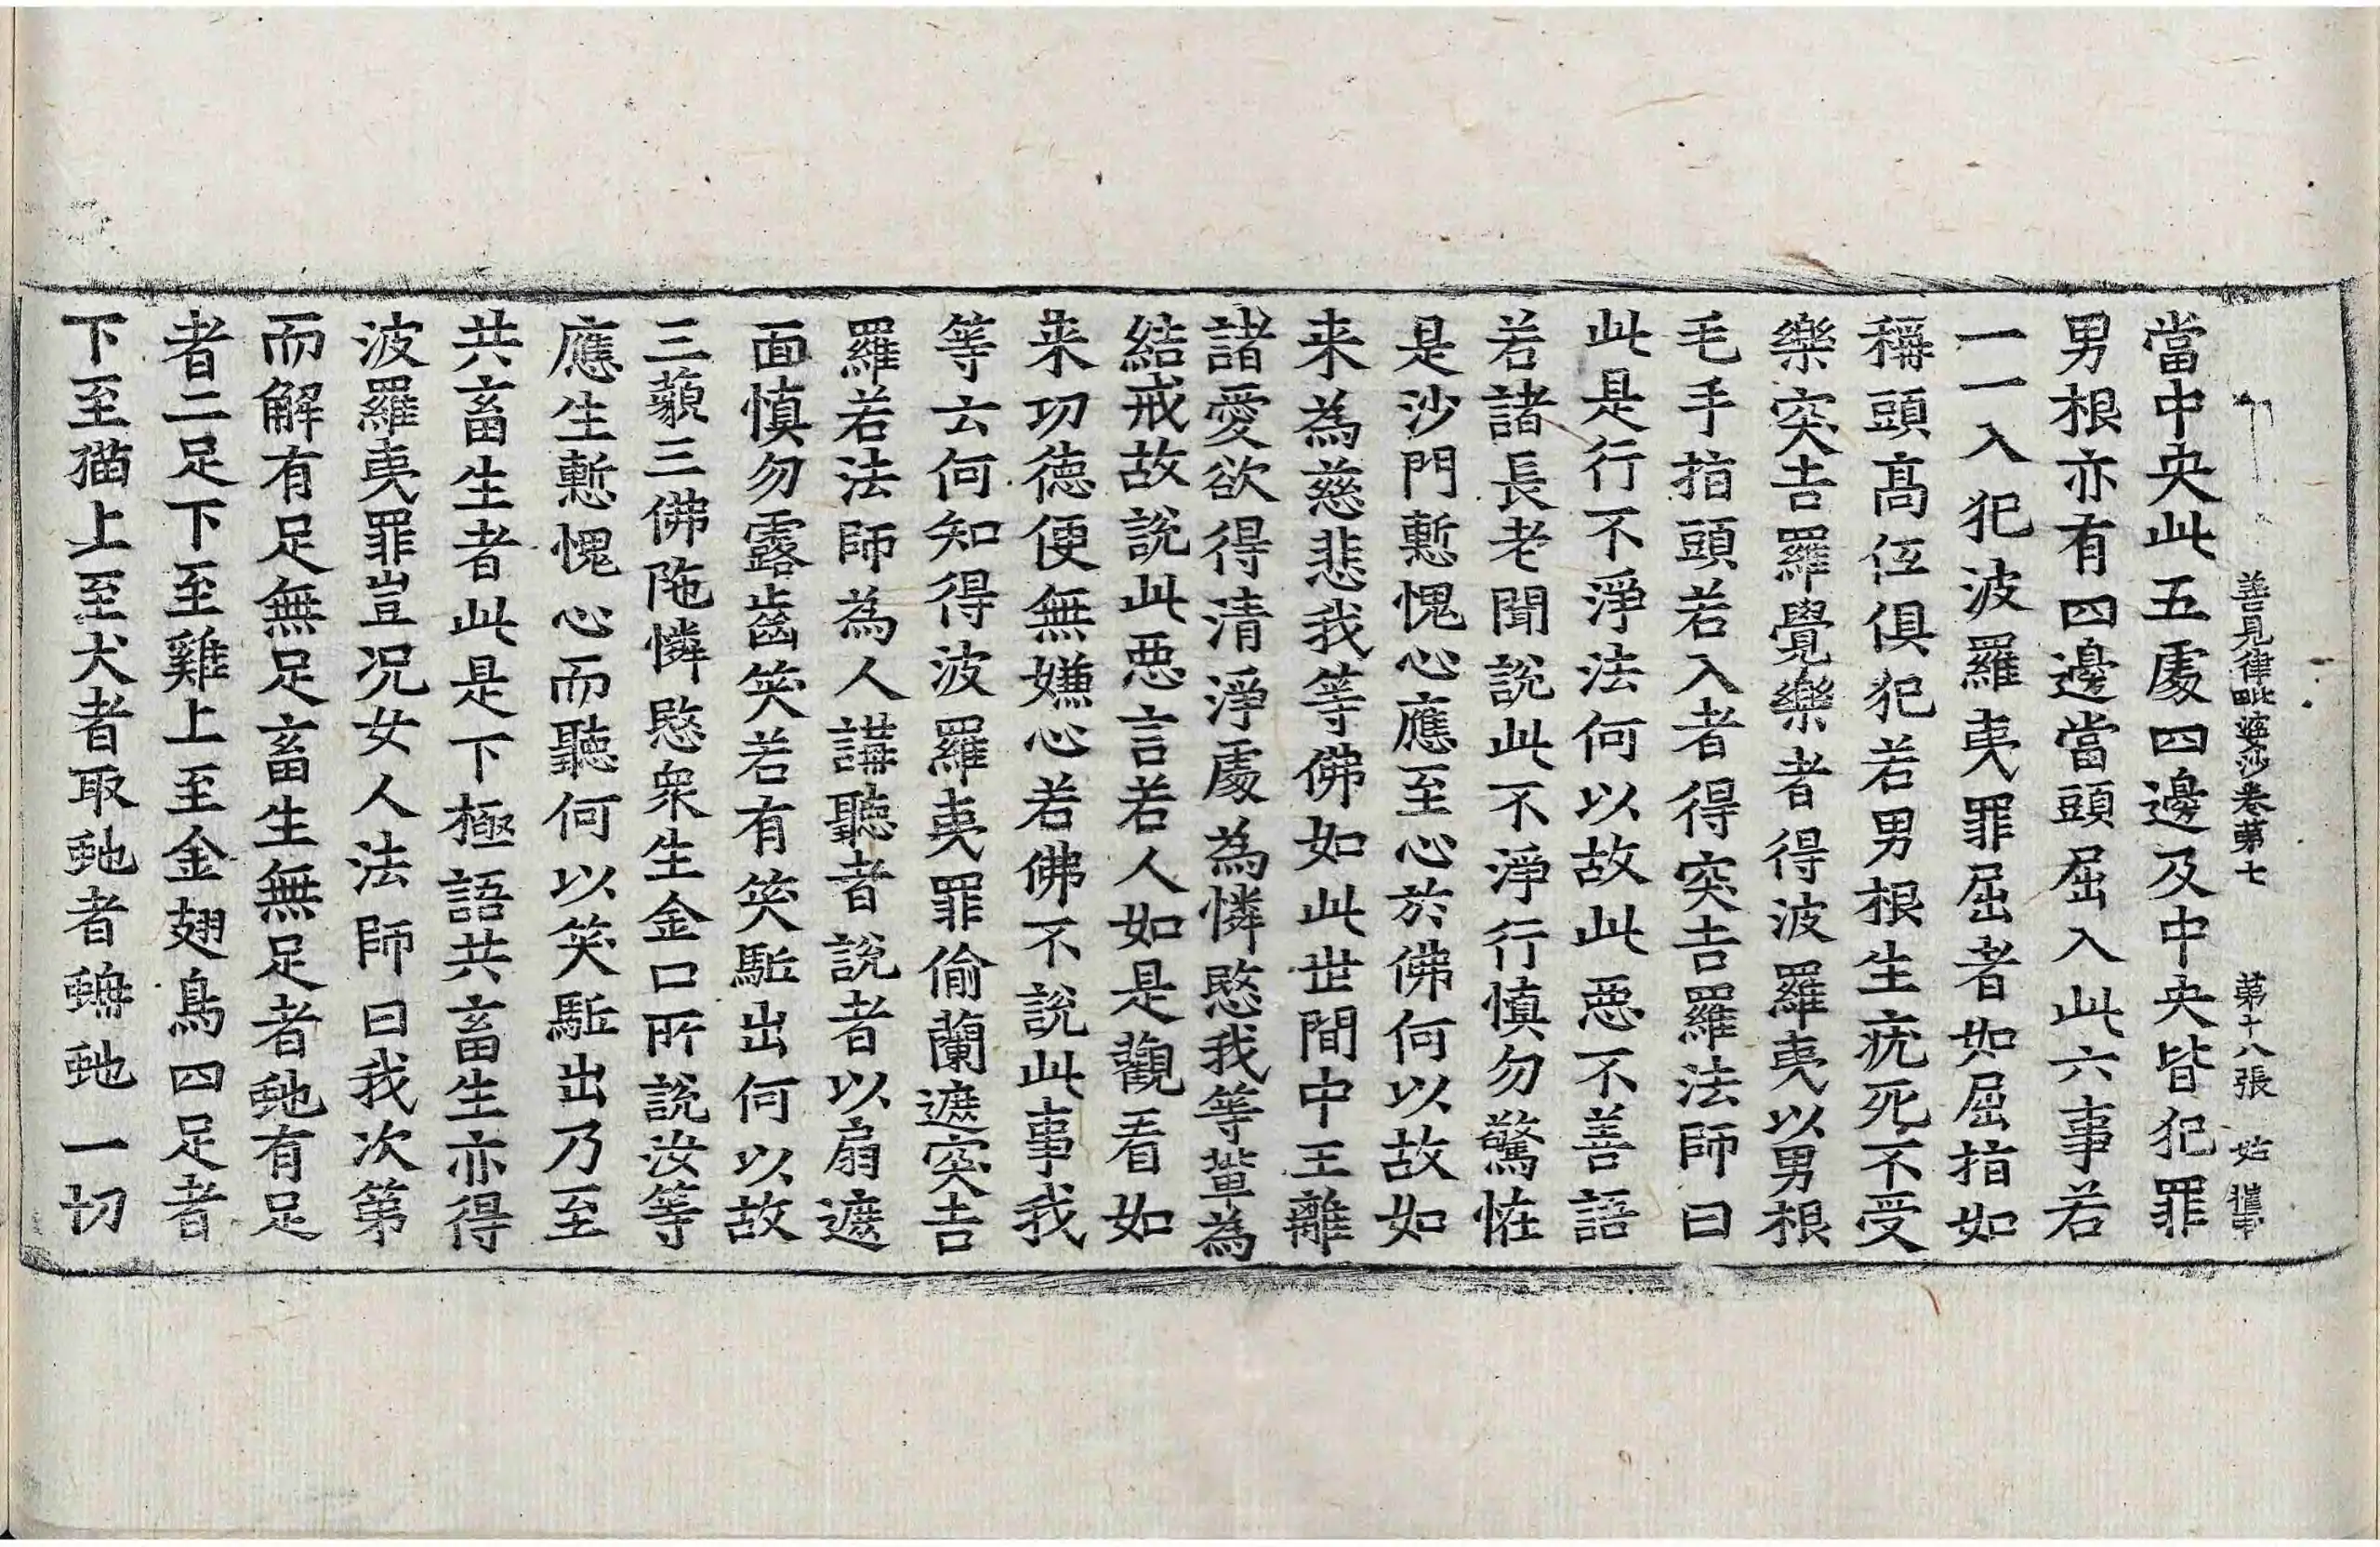 善見律毗婆沙卷第七　第十八張　姑
當中央此五處四邊及中央皆犯罪
男根亦有四邊當頭屈入此六事若
一一入犯波羅夷罪屈者如屈指如
稱頭高伍俱犯若男根生疣死不受
樂突吉羅覺樂者得波羅夷以男根
毛手指頭若入者得突吉羅法師曰
此是行不淨法何以故此惡不善語
若諸長老聞說此不淨行慎勿驚恠
是沙門慙愧心應至心於佛何以故如
来為慈悲我等佛如此世間中王離
諸愛欲得清淨處為憐愍我等輩為
結戒故說此惡言若人如是觀看如
来功德便無嫌心若佛不說此事我
等云何知得波羅夷罪偷蘭遮突吉
羅若法師為人講聽者說者以扇遮
面慎勿露齒笑若有笑駈出何以故
三藐三佛陁憐愍衆生金口所說汝等
應生慙愧心而聽何以笑駈出乃至
共畜生者此是下極語共畜生亦得
波羅夷罪豈况女人法師曰我次第
而解有足無足畜生無足者虵有足
者二足下至雞上至金翅鳥四足者
下至猫上至犬者取虵者蟒虵一切